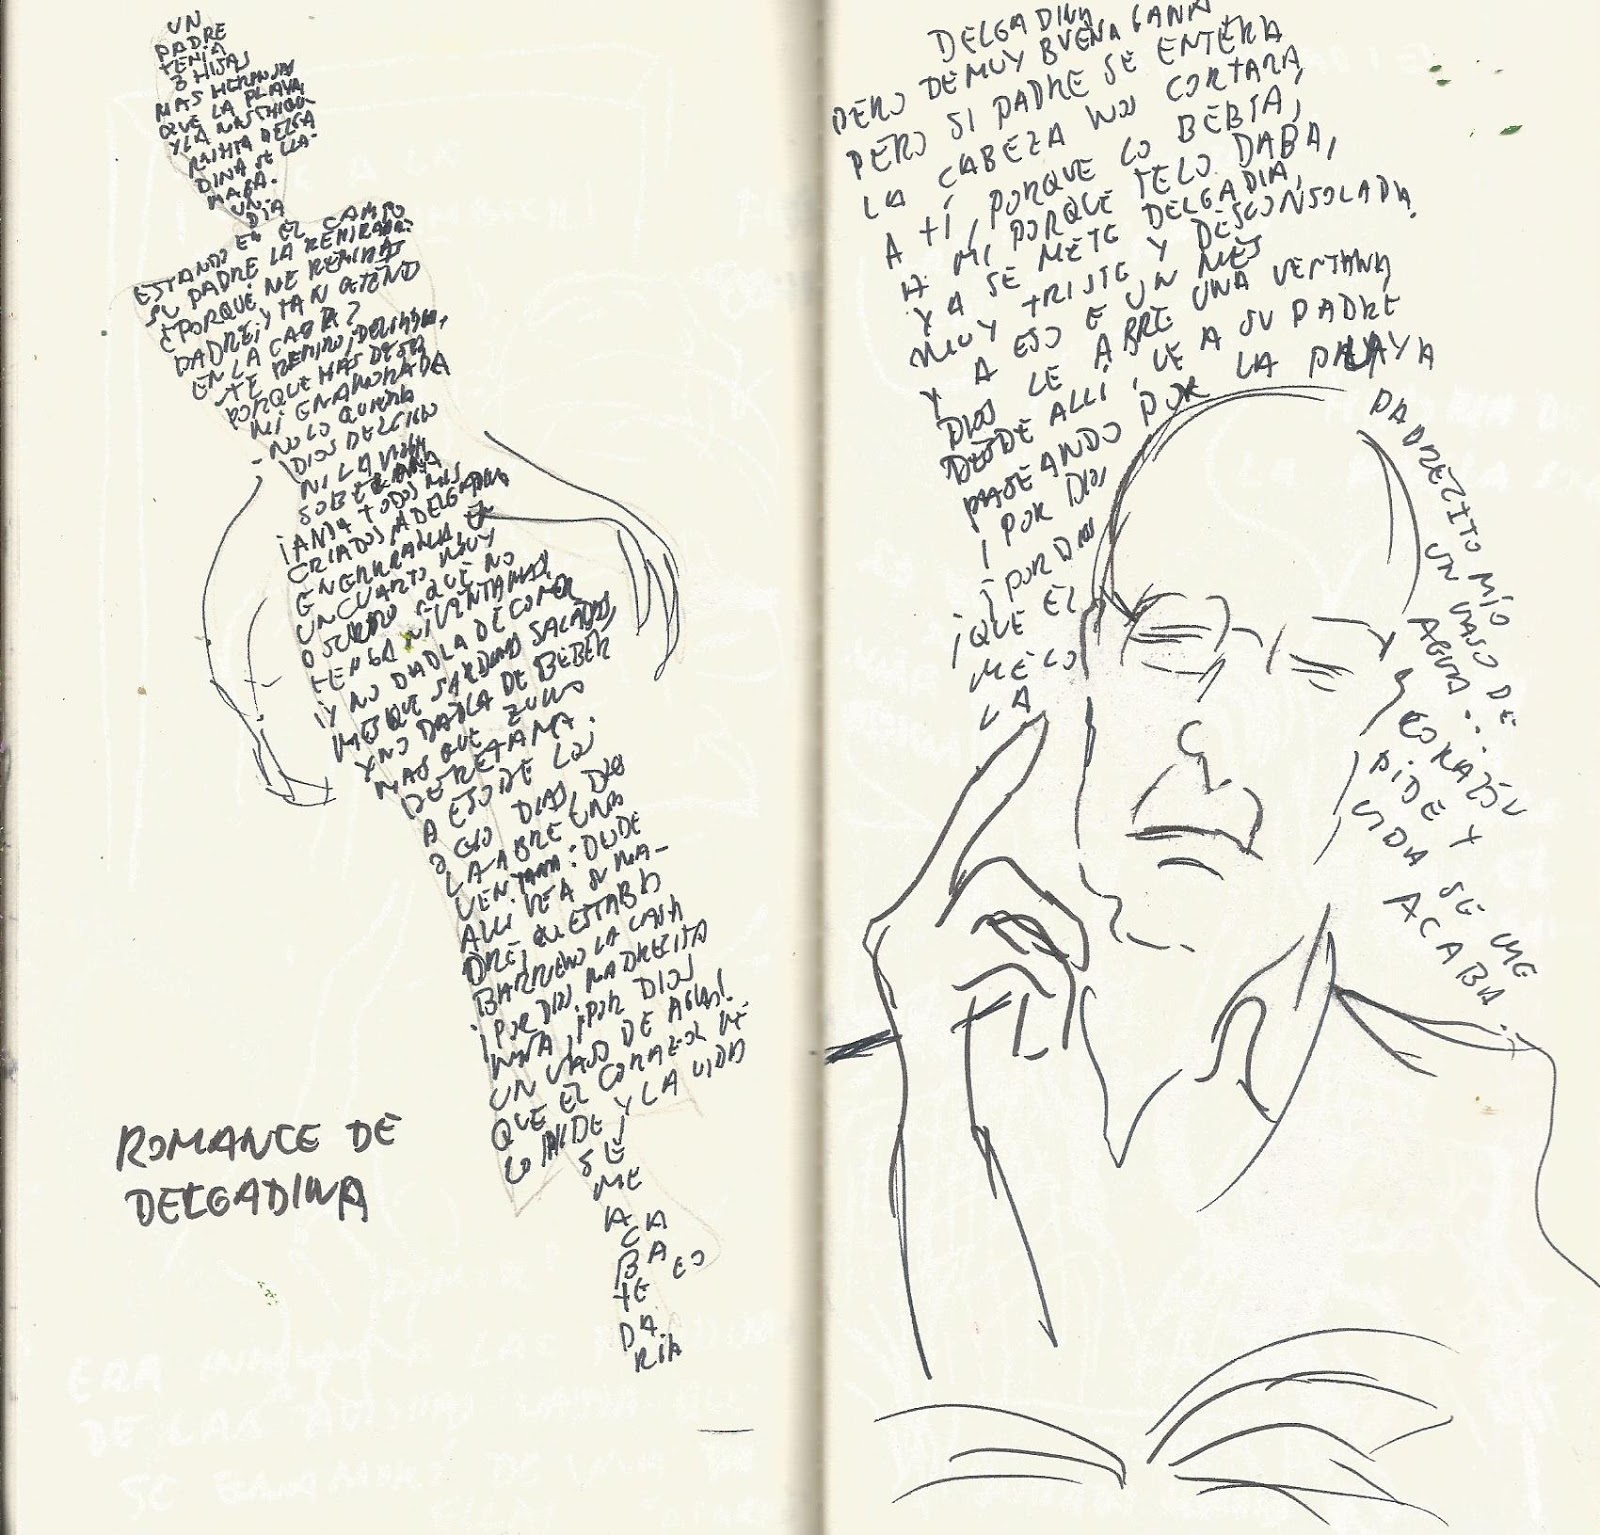 UN
PADRE
TENIA
3 HIJAS
MAS HERMOSAS
QUE LA PLAYA,
Y LA MAS CHIQUI
RRITA DELGA
DINA SE LLA-
MABA.
UN
DIA
ESTANDO EN EL CAMPO
SU PADRE LA REMIRABA:
¿PORQUÉ ME REMIRAS
PADRE, Y TAN ATENTO
EN LA CARA?
-TE REMIRO, DELGADINA,
PORQUE HAS DE SER
MI ENAMORADA
-NO LO QUIERA
DIOS DEL CIELO
NI LA VIRGEN
SOBERANA
¡ANDA TODOS MIS
CRIADOS, A DELGADINA
ENCERRARLA, EN
UN CUARTO MUY
OSCURO QUE NO
TENGA NI VENTANAS,
¡Y NO DADLA DE COMER
MAS QUE SARDINAS SALADAS,
Y NO DADLA DE BEBER
MAS QUE ZUMO
DE RETAMA.
A ESO DE LOS
OCHO DIAS, DIOS
LA ABRE UNA
VENTANA: DESDE
ALLI VE A SU MA-
DRE, QUE ESTABA
BARRIENDO LA CASA
¡POR DIOS, MADRECITA
MIA, ¡POR DIOS
UN VASO DE AGUA!
QUE EL CORAZON ME
LO PIDE Y LA VIDA
SE
ME
ACA
BA
TE LO
DA
RIA
ROMANCE DE
DELGADINA
DELGADINA
PERO DE MUY BUENA GANA
PERO SI PADRE SE ENTERA
LA CABEZA NOS CORTARA,
A TÍ, PORQUE LO BEBIA,
A MI PORQUE TE LO DABA,
YA SE METE DELGADIA,
MUY TRISTE Y DESCONSOLADA.
Y A ESO E UN MES
DIOS LE ABRE UNA VENTANA
DESDE ALLI, VE A SU PADRE
PASEANDO POR LA PLAYA
¡POR DIOS
¡POR DIOS
¡QUE EL
ME LO
LA
PADRECITO MÍO
UN VASO DE
AGUA..
CORAZÓN
PIDE Y
VIDA SE ME
ACABA